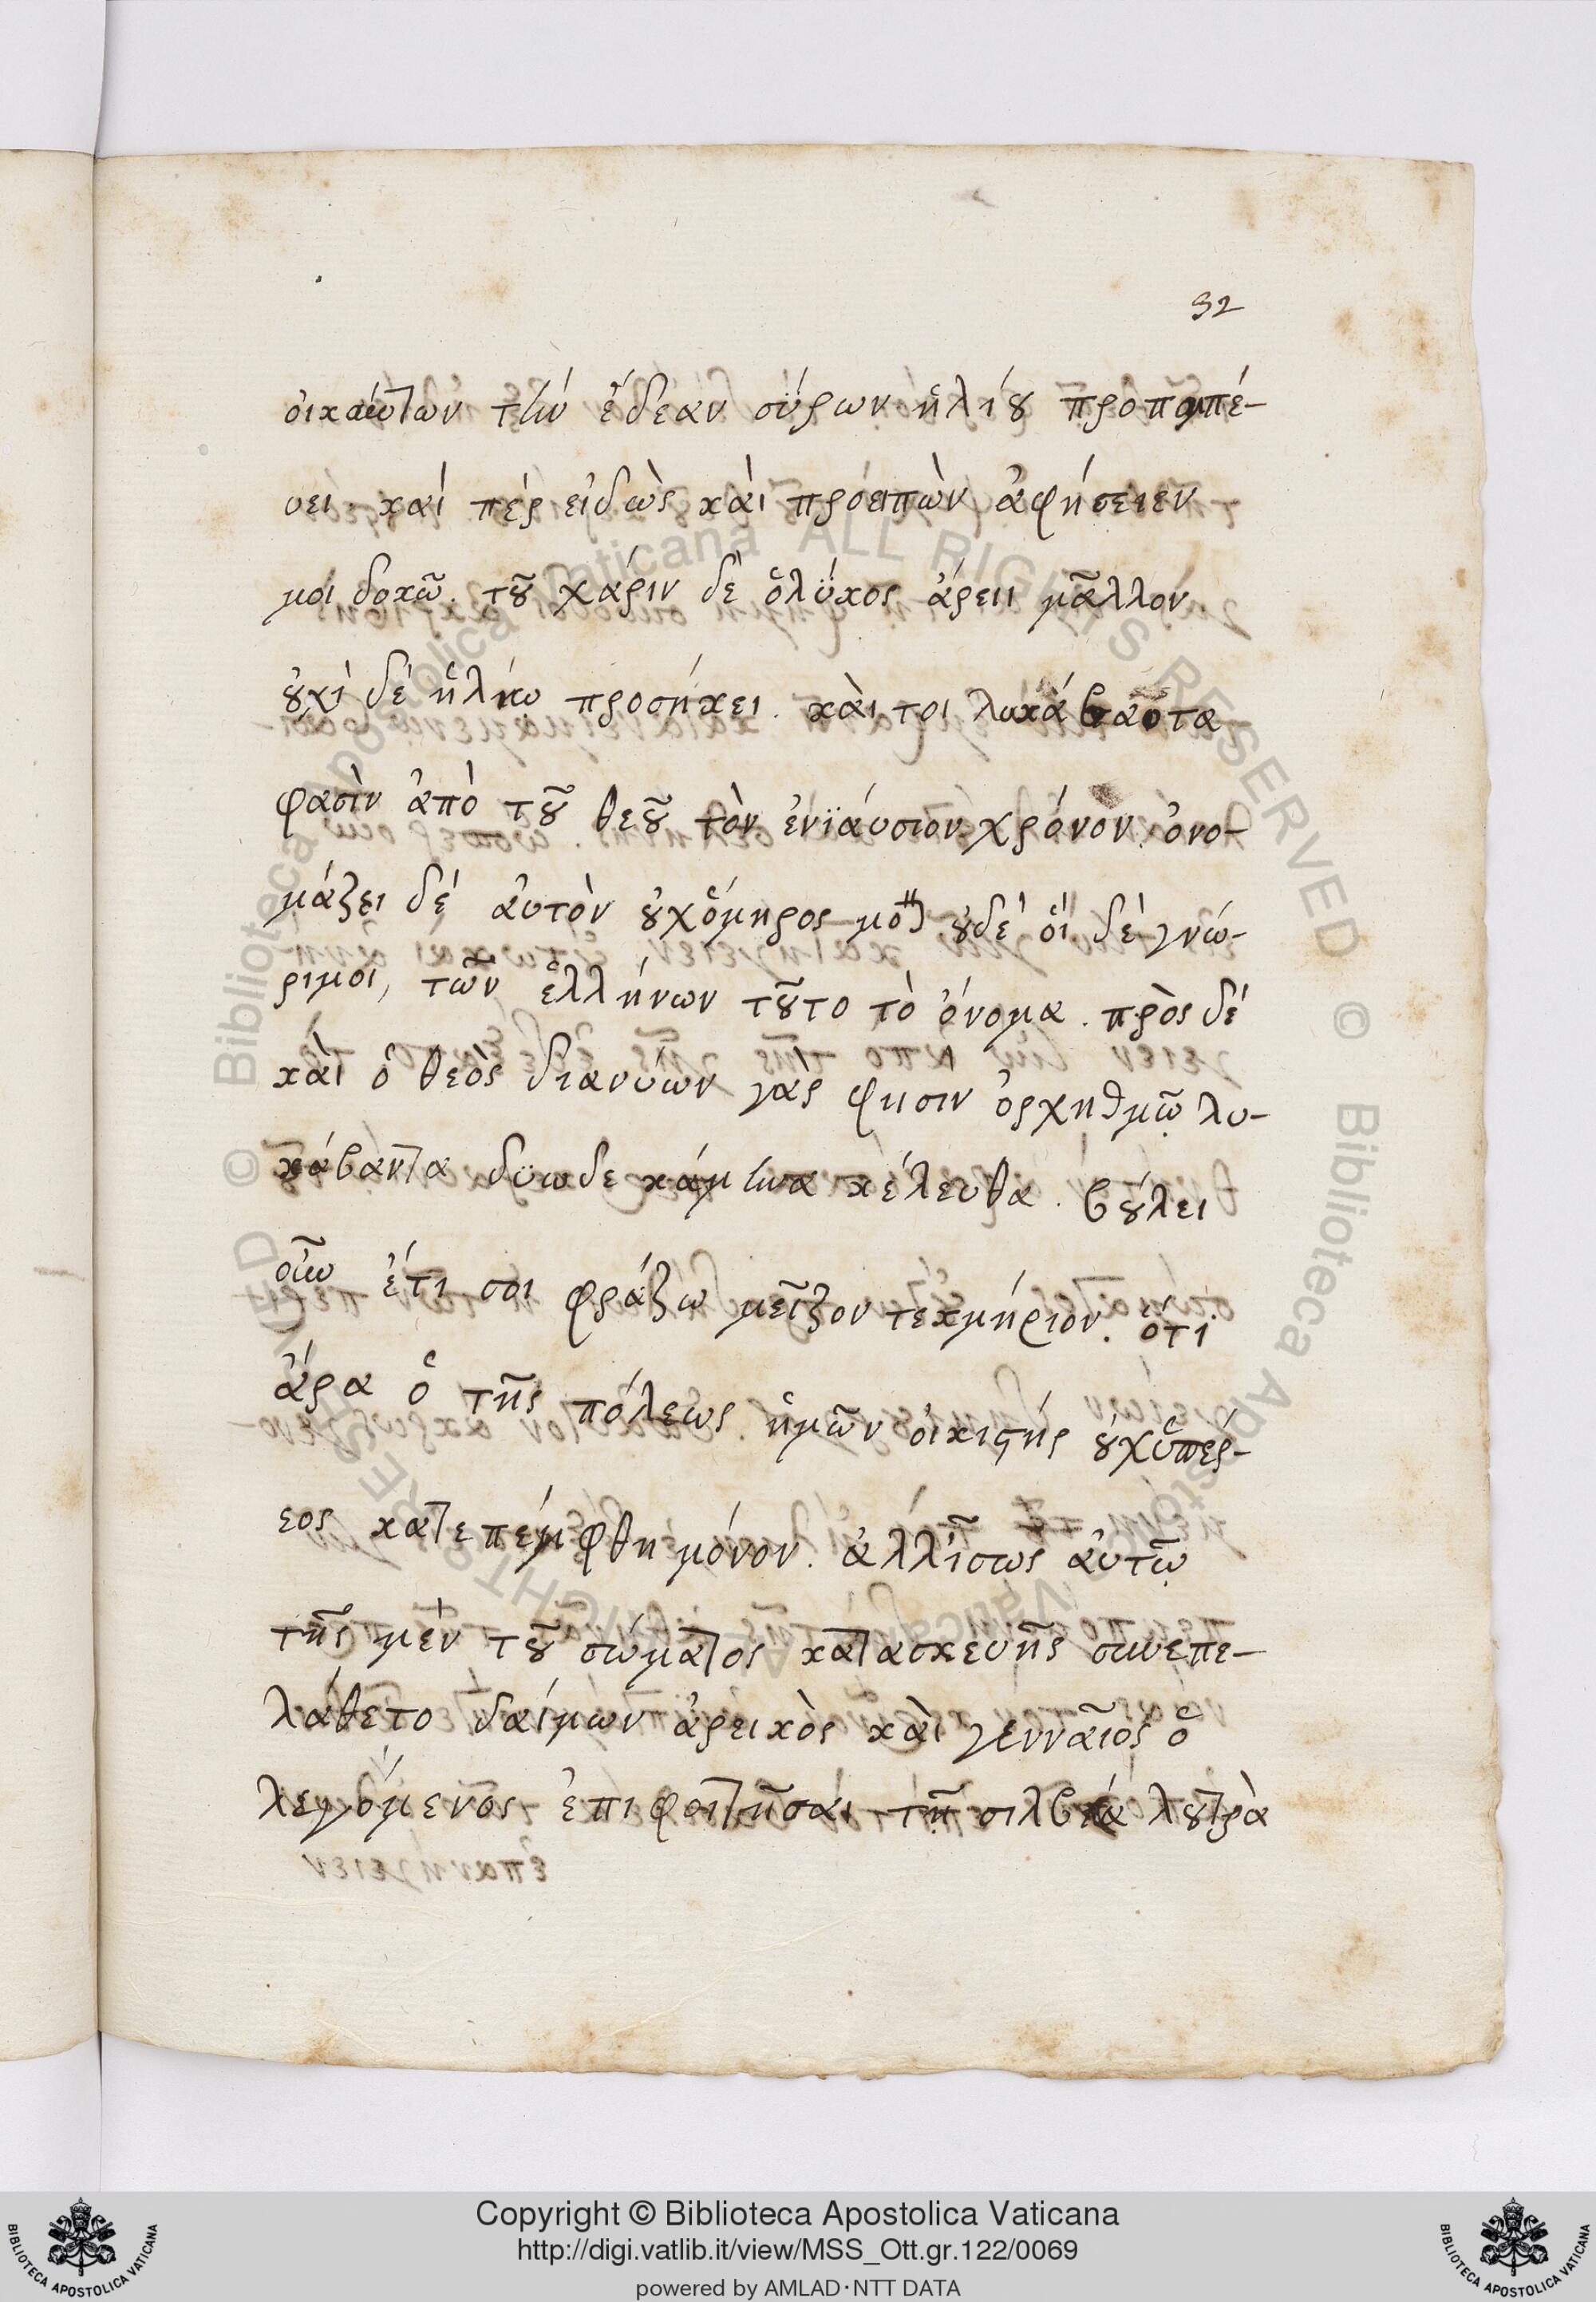 32
οικούντων τὴν ἔδεαν σύρων ἡλίου προπομπέ-
υει καί πέρ εἰδὼς καὶ προειπὼν ἀφήσειεν
μοι δοκῶ. τοῦ χάριν δὲ ὁλύκος ἄρει μᾶλλον
οὐχὶ δέ ἡλίω προσήκει. καὶ τοι λυκά
φασὶν ἀπὸ τοῦ θεοῦ τὸν ἐνϊάυσιον χρόνον. ὀνο-
μάζει δέ ἀυτὸν οὐχόμηρος μόνον οὐδέ ὅι δέ γνώ-
ριμοι, τῶν ἑλλήνων τοῦτο τὸ ὄνομα. πρὸς δέ
καὶ ὁ θεὸς διανύων γάρ φησιν ὀρχηθμῷ λυ-
κάβαντα δϋωδεκάμηνα κέλευθα. βούλει
οὖν ἔτι σοι φράζω μεῖζον τεκμήριον. ὅτι
ἄρα ὁ τῆς πόλεως ἡμῶν οἰκιστής οὐχὑπέρ-
εος κατεπέμφθη μόνον. ἀλλἴσως ἀυτῷ
τῆς μὲν τοῦ σώματος κατασκευῆς συνεπε-
λάθετο δαίμων ἀρεικὸς καὶ γενναῖος ὁ
λεγόμενος ἐπιφοιτῆσάι τῇ σιλβίᾳ λουτρὰ
Copyright © Biblioteca Apostolica Vaticana
http://digi.vatlib.it/view/MSS_Ott.gr.122/0069
powered by AMLAD·NTT DATA
BIBLIOTECA APOSTOLICA VATICANA
BIBLIOTECA APOSTOLICA VATICANA
© Biblioteca Apostolica Vaticana ALL RIGHTS RESERVED
© Biblioteca Apostolica Vaticana ALL RIGHTS RESERVED